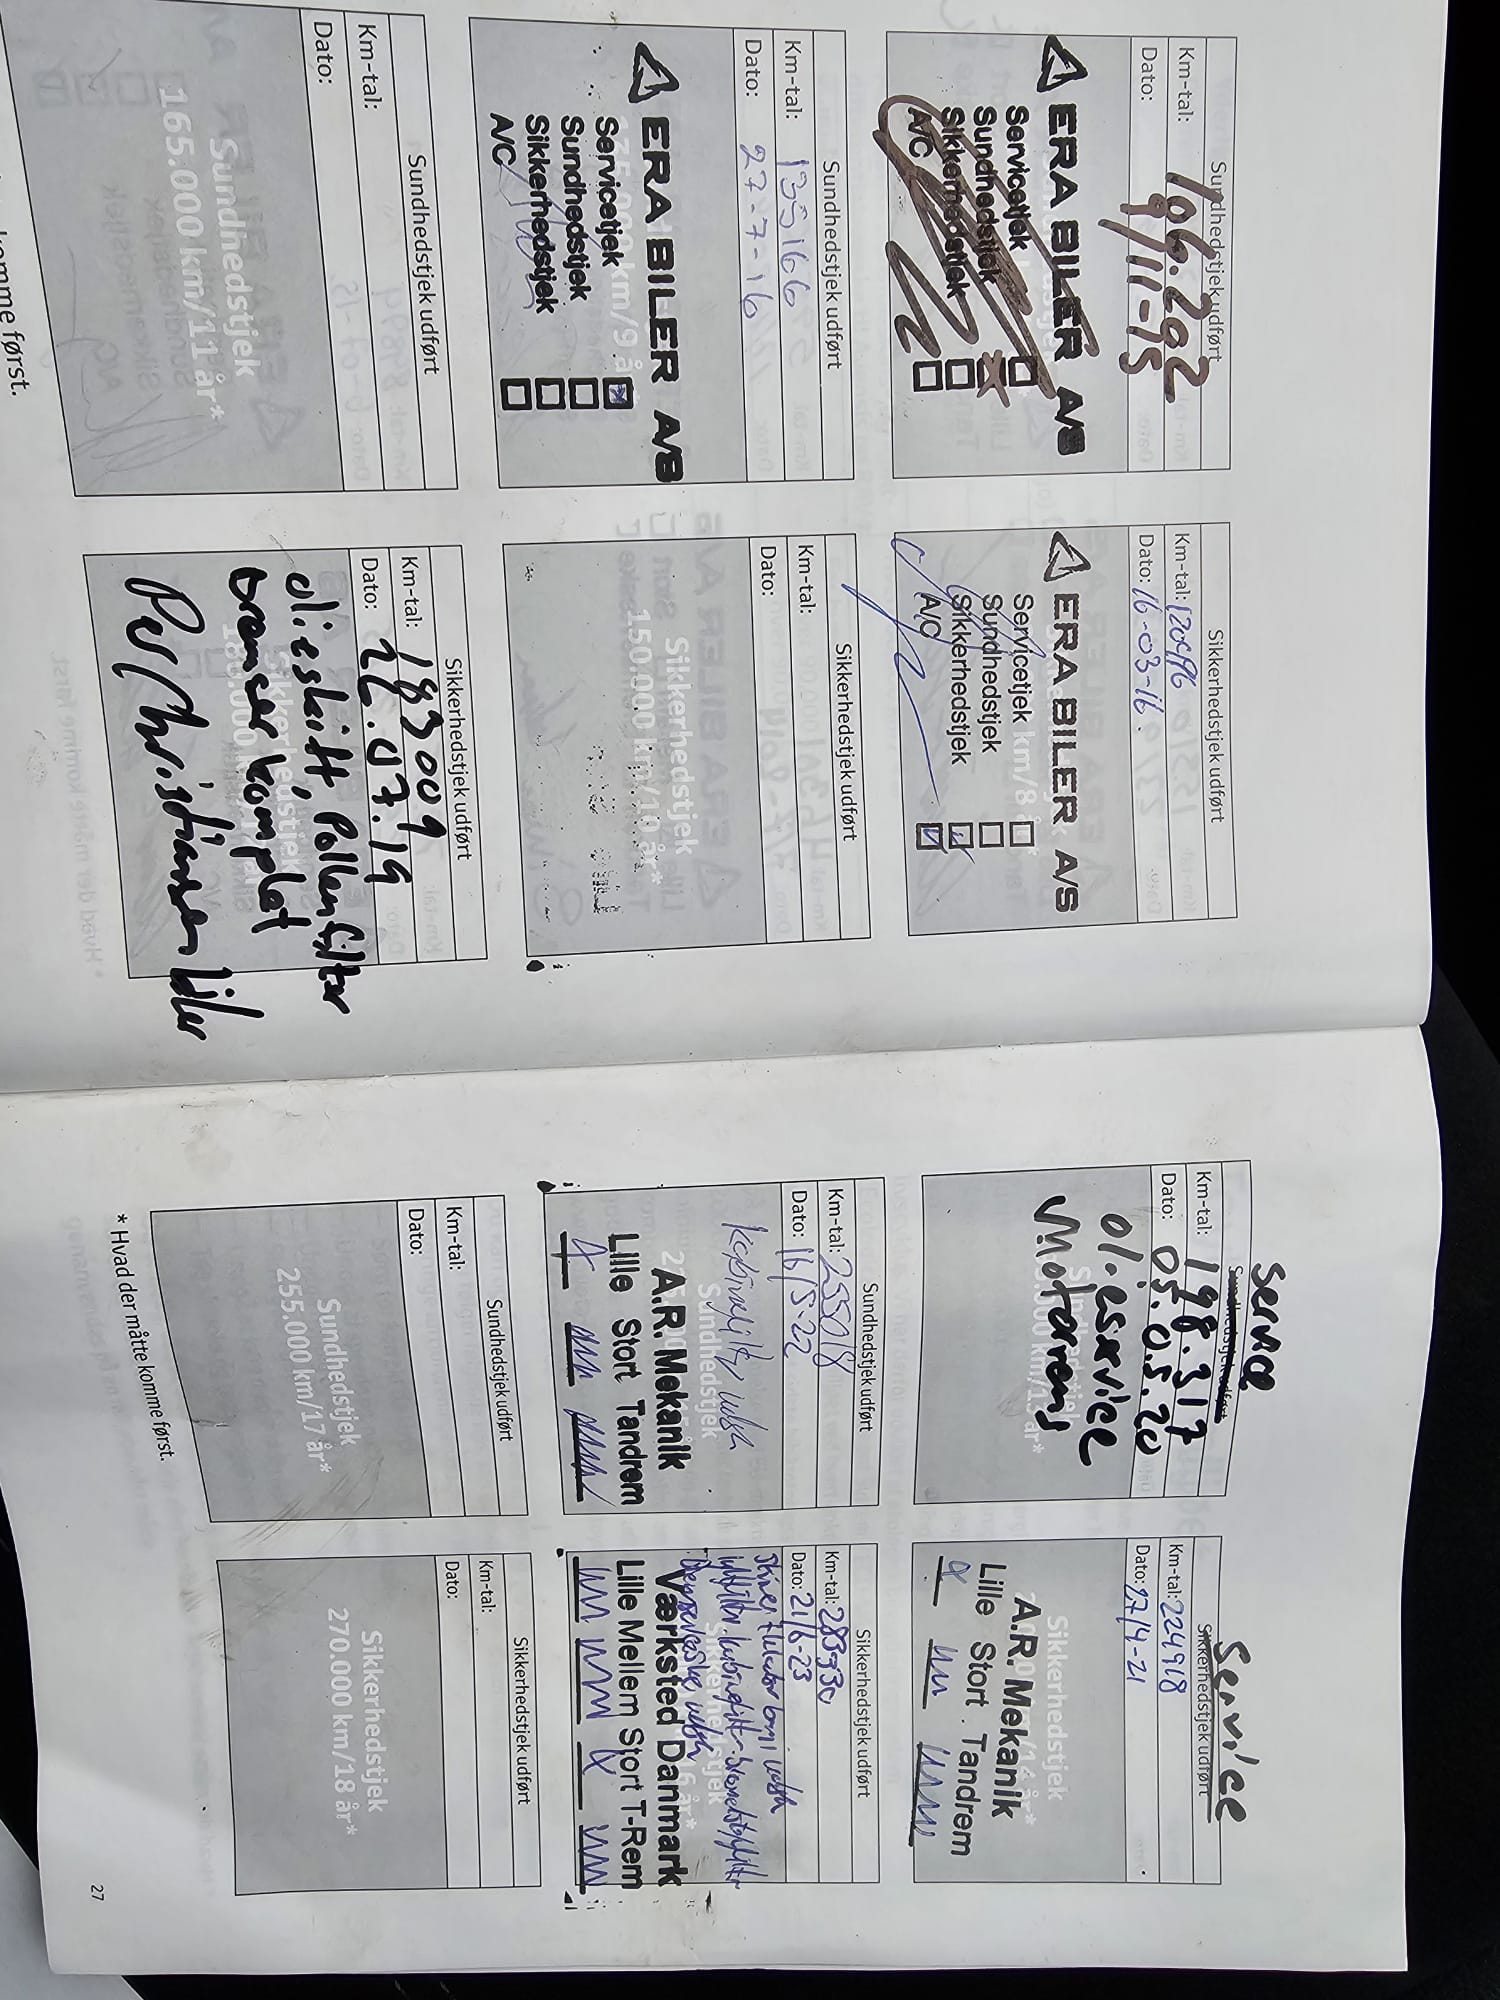 Sundhedstjek udført
Km-tal: 106.292
Dato: 9/11-15
ERA BILER A/S
Servicetjek
Sundhedstjek
Sikkerhedstjek
A/C
Sikkerhedstjek udført
Km-tal: 120496
Dato: 16-03-16
km/8 år*
ERA BILER A/S
Servicetjek
Sundhedstjek
Sikkerhedstjek
A/C
Sundhedstjek udført
Km-tal: 135166
Dato: 27-7-16
135.000 km/9 år*
ERA BILER A/S
Servicetjek
Sundhedstjek
Sikkerhedstjek
A/C
Sikkerhedstjek udført
Km-tal:
Dato:
Sikkerhedstjek
150.000 km/10 år*
Sundhedstjek udført
Km-tal:
Dato:
Sundhedstjek
165.000 km/11 år*
Sikkerhedstjek udført
Km-tal: 183009
Dato: 22.07.19
olieskift, Pollenfilter
bremser komplet
Per Christiansen biler
komme først.
Service
Sundhedstjek udført
Km-tal: 198.317
Dato: 05.05.20
olieservice
Motorens
Service
Sikkerhedstjek udført
Km-tal: 224918
Dato: 27/4-21
Sikkerhedstjek
A.R. Mekanik
Lille Stort Tandrem
Sundhedstjek udført
Km-tal: 255018
Dato: 16/5-22
Sundhedstjek
A.R. Mekanik
Lille Stort Tandrem
Sikkerhedstjek udført
Km-tal: 283930
Dato: 21/6-23
Værksted Danmark
Lille Mellem Stort T-Rem
Sundhedstjek udført
Km-tal:
Dato:
Sundhedstjek
255.000 km/17 år*
Sikkerhedstjek udført
Km-tal:
Dato:
Sikkerhedstjek
270.000 km/18 år*
* Hvad der måtte komme først.
27